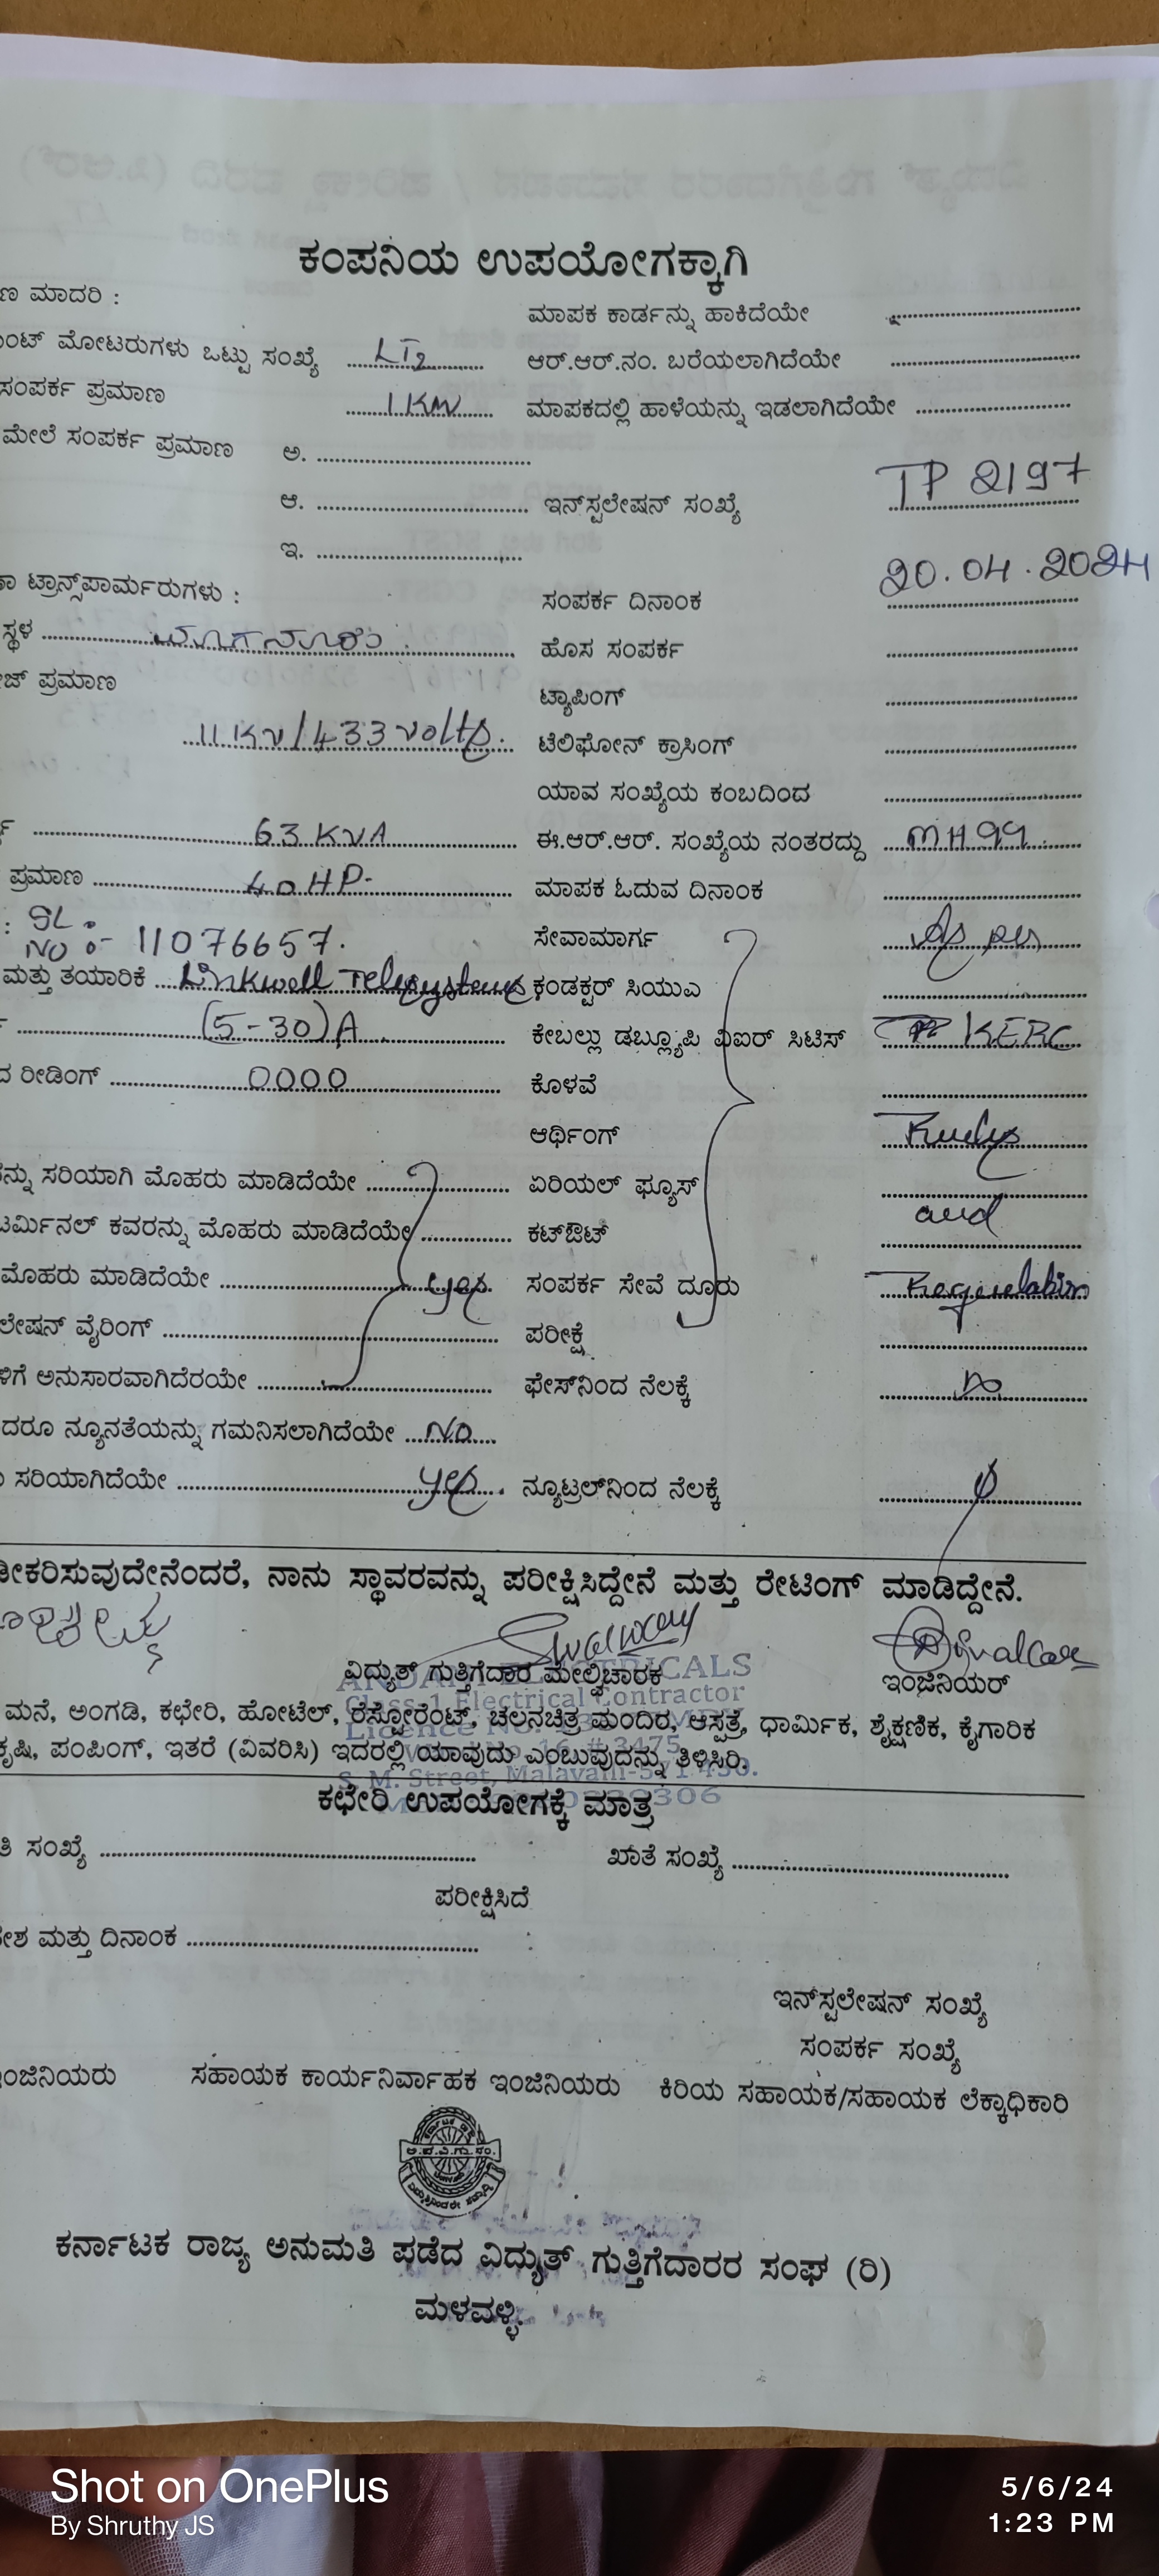 ಕಂಪನಿಯ ಉಪಯೋಗಕ್ಕಾಗಿ
ಣ ಮಾದರಿ :
ಮಾಪಕ ಕಾರ್ಡನ್ನು ಹಾಕಿದೆಯೇ
ಂಟ್ ಮೋಟರುಗಳು ಒಟ್ಟು ಸಂಖ್ಯೆ LT2 ಆರ್.ಆರ್.ನಂ. ಬರೆಯಲಾಗಿದೆಯೇ
ಸಂಪರ್ಕ ಪ್ರಮಾಣ 1 KW ಮಾಪಕದಲ್ಲಿ ಹಾಳೆಯನ್ನು ಇಡಲಾಗಿದೆಯೇ
ಮೇಲೆ ಸಂಪರ್ಕ ಪ್ರಮಾಣ ಅ.
ಆ. ಇನ್‌ಸ್ಟಲೇಷನ್ ಸಂಖ್ಯೆ TP 2197
ಇ.
ಾ ಟ್ರಾನ್ಸ್‌ಪಾರ್ಮರುಗಳು : ಸಂಪರ್ಕ ದಿನಾಂಕ 20.04.2024
ಸ್ಥಳ ಹೊಸ ಸಂಪರ್ಕ
ೇಜ್ ಪ್ರಮಾಣ ಟ್ಯಾಪಿಂಗ್
11 KV/433 volts. ಟೆಲಿಫೋನ್ ಕ್ರಾಸಿಂಗ್
ಯಾವ ಸಂಖ್ಯೆಯ ಕಂಬದಿಂದ
63 KVA ಈ.ಆರ್.ಆರ್. ಸಂಖ್ಯೆಯ ನಂತರದ್ದು MH99
ಪ್ರಮಾಣ 40 HP. ಮಾಪಕ ಓದುವ ದಿನಾಂಕ
: SL. NO :- 11076657. ಸೇವಾಮಾರ್ಗ As per
ಮತ್ತು ತಯಾರಿಕೆ Linkwell Telesystems, ಕಂಡಕ್ಟರ್ ಸಿಯುಎ
(5-30)A ಕೇಬಲ್ಲು ಡಬ್ಲ್ಯೂಪಿ ವಿಐರ್ ಸಿಟಿಸ್ KERC
ದ ರೀಡಿಂಗ್ 0000 ಕೊಳವೆ
ಆರ್ಥಿಂಗ್ Rules
ನ್ನು ಸರಿಯಾಗಿ ಮೊಹರು ಮಾಡಿದೆಯೇ ಏರಿಯಲ್ ಫ್ಯೂಸ್
ಟರ್ಮಿನಲ್ ಕವರನ್ನು ಮೊಹರು ಮಾಡಿದೆಯೇ ಕಟ್‌ಔಟ್ and
ಮೊಹರು ಮಾಡಿದೆಯೇ yes. ಸಂಪರ್ಕ ಸೇವೆ ದೂರು Regulation
ಲೇಷನ್ ವೈರಿಂಗ್ ಪರೀಕ್ಷೆ
ಳಿಗೆ ಅನುಸಾರವಾಗಿದೆರಯೇ ಫೇಸ್‌ನಿಂದ ನೆಲಕ್ಕೆ
ದರೂ ನ್ಯೂನತೆಯನ್ನು ಗಮನಿಸಲಾಗಿದೆಯೇ No
ಸರಿಯಾಗಿದೆಯೇ yes. ನ್ಯೂಟ್ರಲ್‌ನಿಂದ ನೆಲಕ್ಕೆ
ೀಕರಿಸುವುದೇನೆಂದರೆ, ನಾನು ಸ್ಥಾವರವನ್ನು ಪರೀಕ್ಷಿಸಿದ್ದೇನೆ ಮತ್ತು ರೇಟಿಂಗ್ ಮಾಡಿದ್ದೇನೆ.
ವಿದ್ಯುತ್ ಗುತ್ತಿಗೆದಾರ ಮೇಲ್ವಿಚಾರಕ ಇಂಜಿನಿಯರ್
Class-1 Electrical Contractor
ಮನೆ, ಅಂಗಡಿ, ಕಛೇರಿ, ಹೋಟೆಲ್, ರೆಸ್ಟೋರೆಂಟ್, ಚಲನಚಿತ್ರ ಮಂದಿರ, ಆಸ್ಪತ್ರೆ, ಧಾರ್ಮಿಕ, ಶೈಕ್ಷಣಿಕ, ಕೈಗಾರಿಕ
ಕೃಷಿ, ಪಂಪಿಂಗ್, ಇತರೆ (ವಿವರಿಸಿ) ಇದರಲ್ಲಿ ಯಾವುದು ಎಂಬುವುದನ್ನು ತಿಳಿಸಿರಿ.
S. M. Street, Malavalli-571 430.
ಕಛೇರಿ ಉಪಯೋಗಕ್ಕೆ ಮಾತ್ರ
ತಿ ಸಂಖ್ಯೆ ಖಾತೆ ಸಂಖ್ಯೆ
ಪರೀಕ್ಷಿಸಿದೆ
ೇಶ ಮತ್ತು ದಿನಾಂಕ
ಇನ್‌ಸ್ಟಲೇಷನ್ ಸಂಖ್ಯೆ
ಸಂಪರ್ಕ ಸಂಖ್ಯೆ
ಇಂಜಿನಿಯರು ಸಹಾಯಕ ಕಾರ್ಯನಿರ್ವಾಹಕ ಇಂಜಿನಿಯರು ಕಿರಿಯ ಸಹಾಯಕ/ಸಹಾಯಕ ಲೆಕ್ಕಾಧಿಕಾರಿ
ಕರ್ನಾಟಕ ರಾಜ್ಯ ಅನುಮತಿ ಪಡೆದ ವಿದ್ಯುತ್ ಗುತ್ತಿಗೆದಾರರ ಸಂಘ (ರಿ)
ಮಳವಳ್ಳಿ.
Shot on OnePlus
By Shruthy JS
5/6/24
1:23 PM